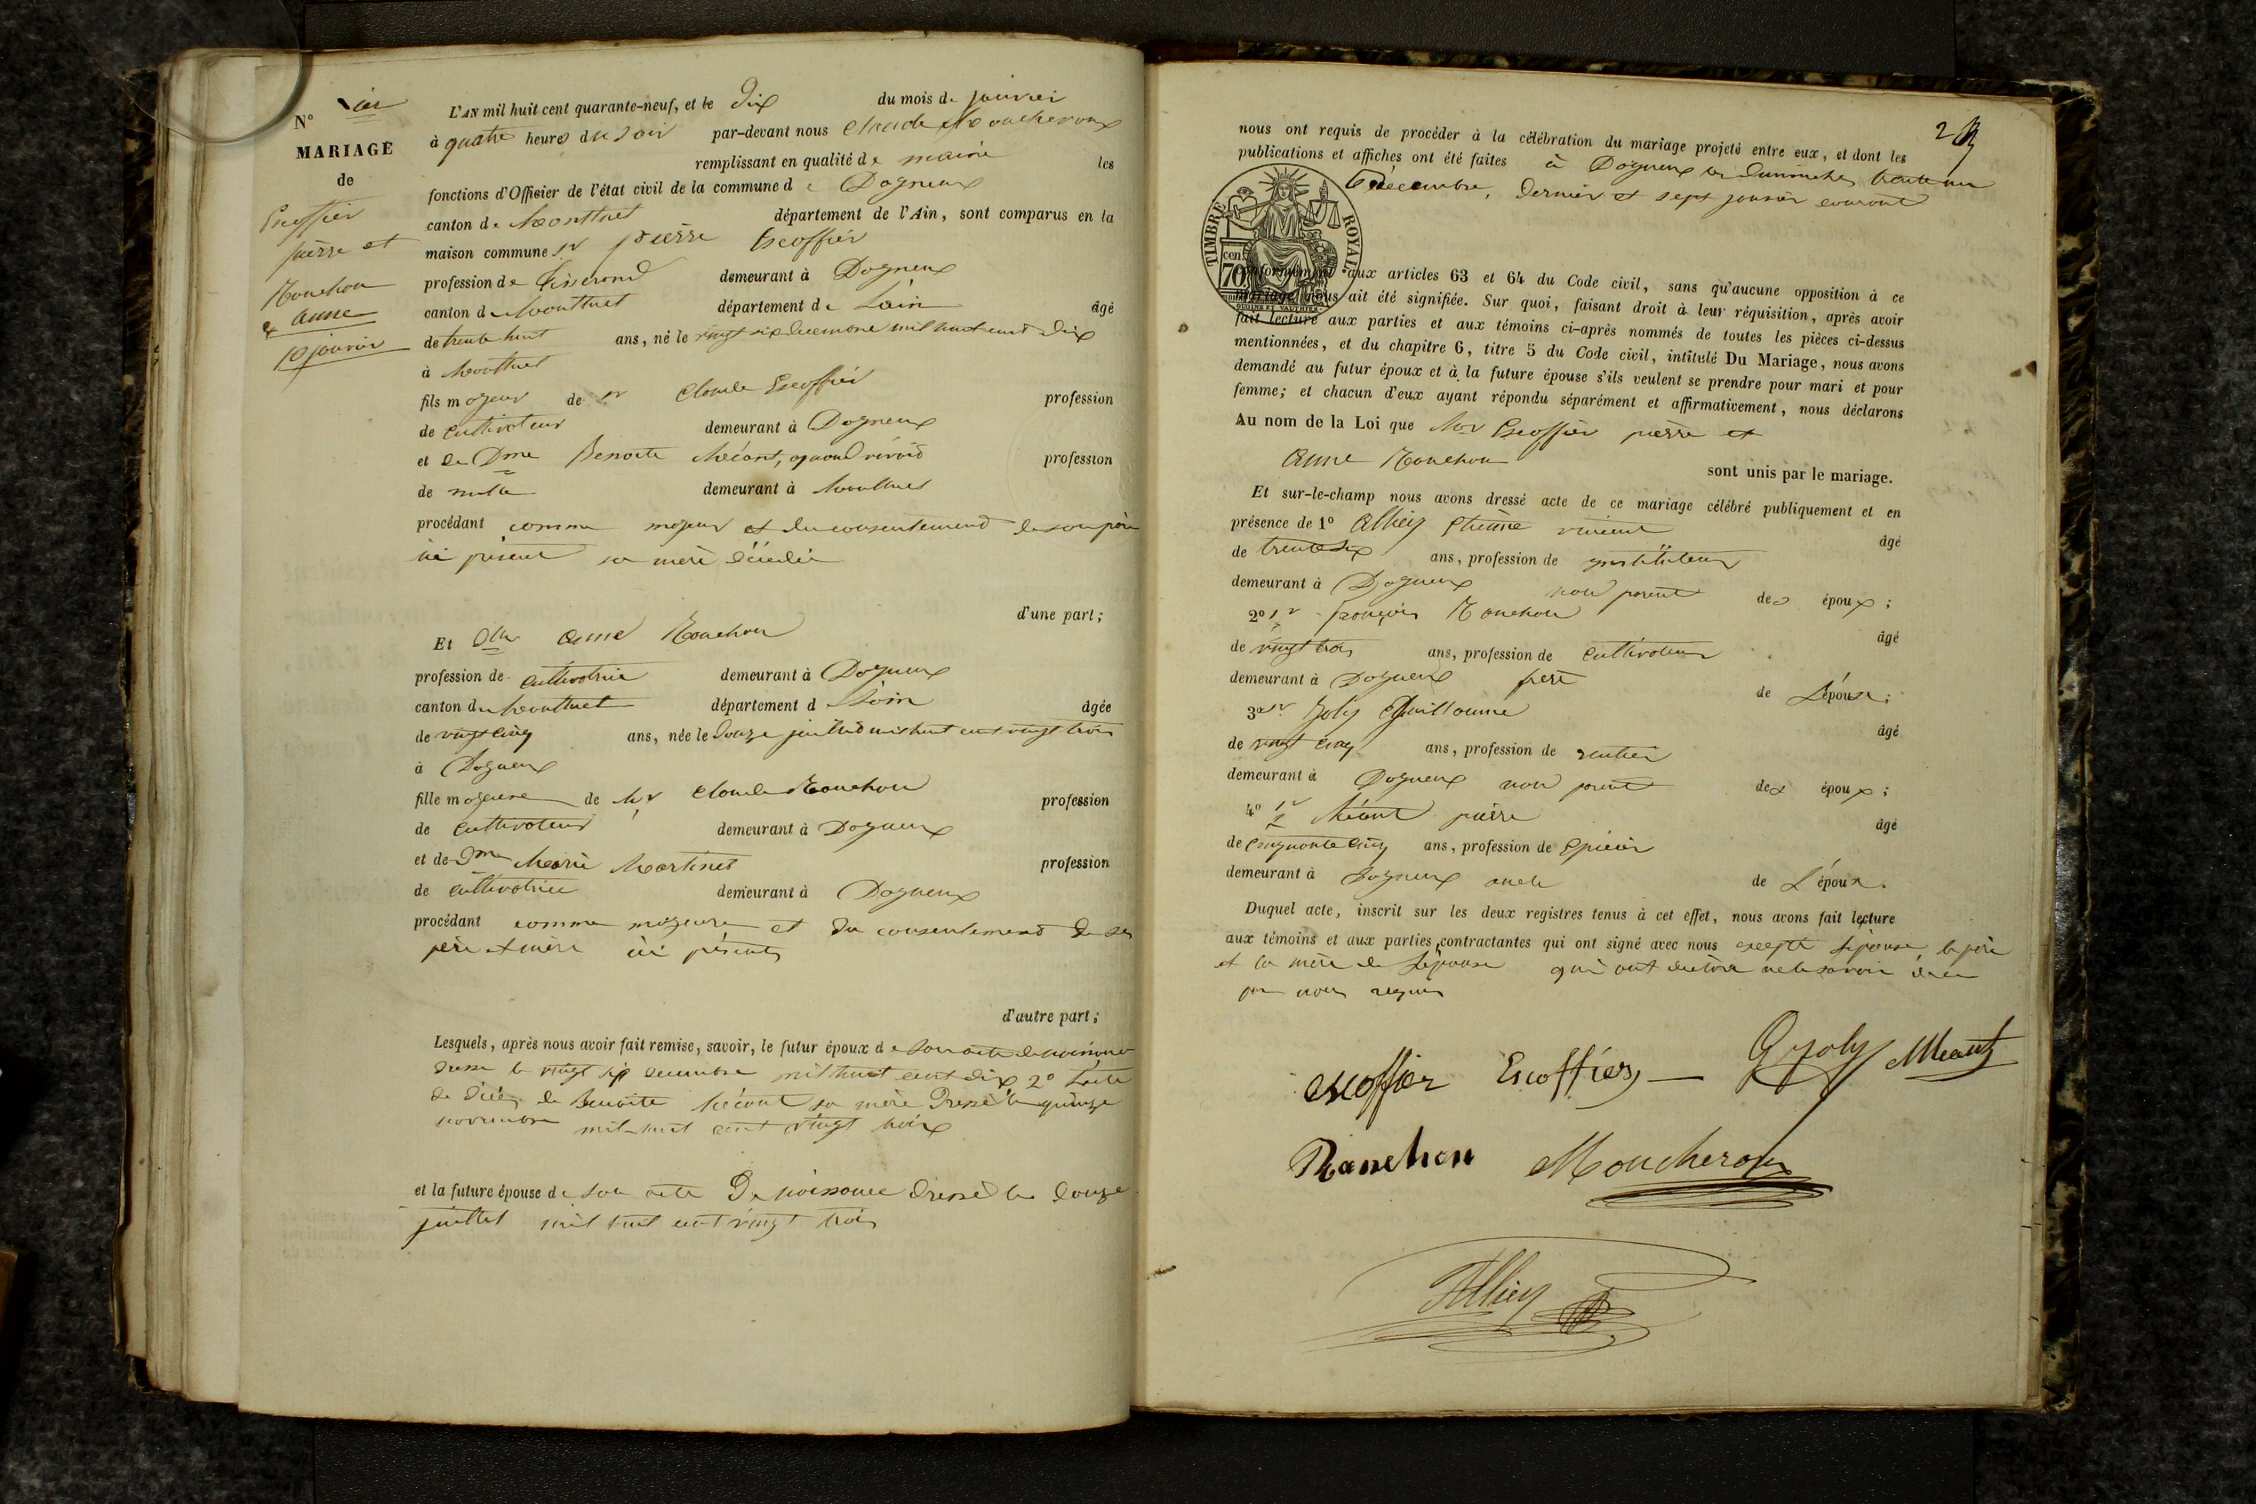 N° 1er
MARIAGE
de
Escoffier
pierre et
Ronchon
anne
10 janvier
L'AN mil huit cent quarante-neuf, et le Dix du mois de janvier
à quatre heures du soir par-devant nous Claude Moucheroux
remplissant en qualité de maire les
fonctions d'Officier de l'état civil de la commune de Dagneux
canton de Montluel département de l'Ain, sont comparus en la
maison commune Sr pierre Escoffier
profession de Tisserand demeurant à Dagneux
canton de Montluel département de Lain âgé
de trente huit ans, né le vingt six decembre mil huit cent dix
à Montluel
fils majeur de Sr Claude Escoffier profession
de cultivateur demeurant à Dagneux
et de Dme Benoite Méant, quand vivoit profession
de demeurant à Montluel
procédant comme majeur et du consentement de son père
ici présent sa mère décédée
d'une part;
Et Dlle anne Ronchon
profession de cultivatrice demeurant à Dagneux
canton de Montluel département de Lain âgée
de vingt cinq ans, née le Douze juillet mil huit cent vingt trois
à Dagneux
fille majeure de Mr Claude Ronchon profession
de cultivateur demeurant à Dagneux
et de Dme Marie Martinet profession
de cultivatrice demeurant à Dagneux
procédant comme majeure et du consentement de ses
père et mère ici présents
d'autre part;
Lesquels, après nous avoir fait remise, savoir, le futur époux de son acte de naissance
dressé le vingt six decembre mil huit cent dix 2° Lacte
de décès de Benoite Méant sa mère Dressé le quinze
novembre mil huit cent vingt
et la future épouse de son acte De naissance Dressé le Douze
juillet mil huit cent vingt trois
nous ont requis de procéder à la célébration du mariage projeté entre eux, et dont les
publications et affiches ont été faites à Dagneux les Dimanches trente un
décembre, Dernier et sept janvier courant
TIMBRE ROYAL
70 cen.
Conformément aux articles 63 et 64 du Code civil, sans qu'aucune opposition à ce
mariage nous ait été signifiée. Sur quoi, faisant droit à leur réquisition, après avoir
fait lecture aux parties et aux témoins ci-après nommés de toutes les pièces ci-dessus
mentionnées, et du chapitre 6, titre 5 du Code civil, intitulé Du Mariage, nous avons
demandé au futur époux et à la future épouse s'ils veulent se prendre pour mari et pour
femme; et chacun d'eux ayant répondu séparément et affirmativement, nous déclarons
Au nom de la Loi que Mr Escoffier pierre et
Anne Ronchon sont unis par le mariage.
Et sur-le-champ nous avons dressé acte de ce mariage célébré publiquement et en
présence de 1° Alliey Etienne vincent âgé
de trente six ans, profession de instituteur
demeurant à Dagneux non parent des époux;
2° Sr françois Ronchon âgé
de vingt trois ans, profession de cultivateur
demeurant à Dagneux frere de L'épouse;
3° Sr Joly Guillaume âgé
de vingt cinq ans, profession de rentier
demeurant à Dagneux non parent des époux;
4° Sr Méant pierre âgé
de cinquante cinq ans, profession de Epicier
demeurant à Dagneux oncle de L'époux.
Duquel acte, inscrit sur les deux registres tenus à cet effet, nous avons fait lecture
aux témoins et aux parties contractantes qui ont signé avec nous excepté L'épouse, le père
et la mère de L'épouse qui ont déclaré ne le savoir de ce
par nous requis
escoffier Escoffier G Joly Meant
Ronchon Moucheroux
Alliey